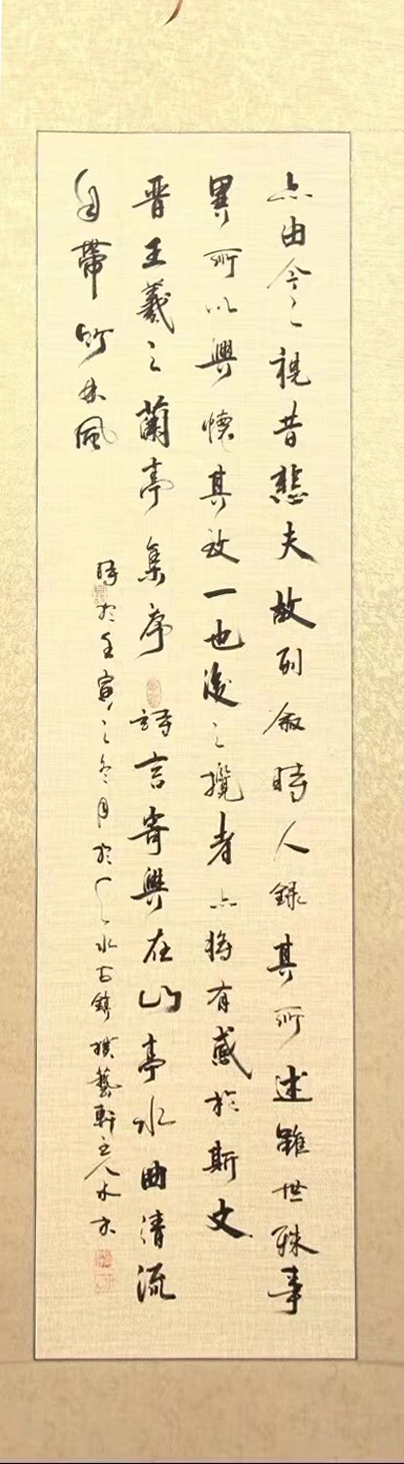 亦由今之視昔悲夫故列叙時人錄其所述雖世殊事
異所以興懷其致一也後之攬者亦將有感於斯文
晋王羲之蘭亭集序詩言寄興在山亭水曲清流
自帶竹林風
時於壬寅之冬月於水古鎮樸藝軒主人木